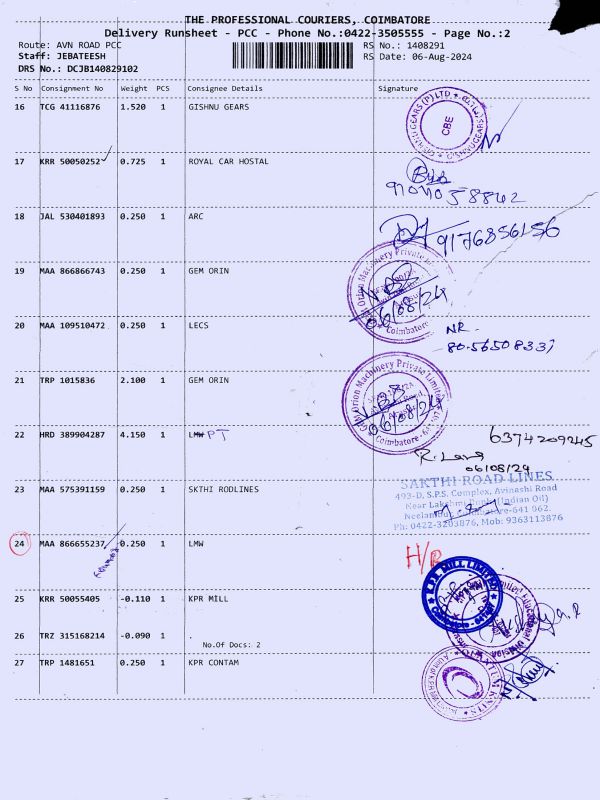 THE PROFESSIONAL COURIERS, COIMBATORE
Delivery Runsheet - PCC - Phone No.:0422-3505555 - Page No.:2
Route: AVN ROAD PCC RS No.: 1408291
Staff: JEBATEESH RS Date: 06-Aug-2024
DRS No.: DCJB140829102
S No Consignment No Weight PCS Consignee Details Signature
16 TCG 41116876 1.520 1 GISHNU GEARS
CBE
17 KRR 50050252 0.725 1 ROYAL CAR HOSTAL
18 JAL 530401893 0.250 1 ARC
9176856156
19 MAA 866866743 0.250 1 GEM ORIN
Orion Machinery Private
06/08/24
Coimbatore
20 MAA 109510472 0.250 1 LECS
NR.
21 TRP 1015836 2.100 1 GEM ORIN
Orion Machinery Private Limited
06/08/24
Coimbatore
22 HRD 389904287 4.150 1 LMW PT
6374209245
06/08/24
23 MAA 575391159 0.250 1 SKTHI RODLINES
SAKTHI ROAD LINES
493-D, S.P.S. Complex, Avinashi Road
Near Lakshmi (Indian Oil)
Coimbatore-641 062.
Ph: 0422-3203876, Mob: 9363113876
24 MAA 866655237 0.250 1 LMW
H/R
25 KRR 50055405 -0.110 1 KPR MILL
MILL LIMITED
26 TRZ 315168214 -0.090 1 .
No.Of Docs: 2
27 TRP 1481651 0.250 1 KPR CONTAM